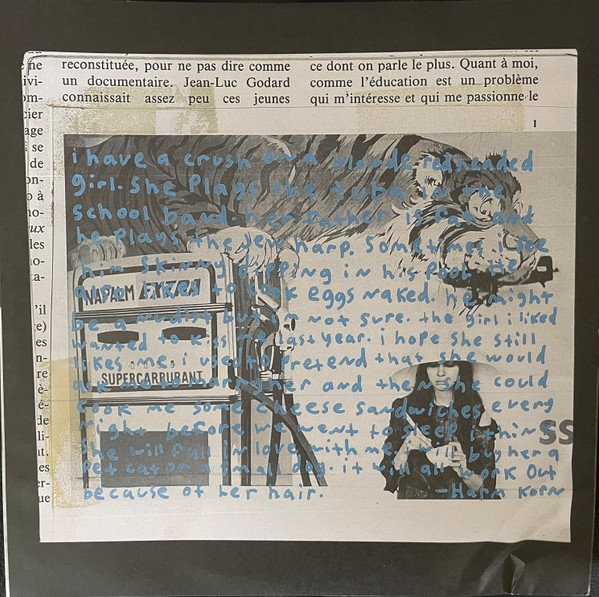 reconstituée, pour ne pas dire comme
un documentaire. Jean-Luc Godard
connaissait assez peu ces jeunes
ce dont on parle le plus. Quant à moi,
comme l'éducation est un problème
qui m'intéresse et qui me passionne le
1
i have a crush on a blonde redheaded
girl. she plays the tuba in the
school band. her father is fat and
he plays the jew harp. Sometimes i see
him skinny dipping in his pool. He
also likes to cook eggs naked. he might
be a nudist but i'm not sure. the girl i liked
wanted to kiss me last year. i hope she still
likes me. i used to pretend that she would
ask me to marry her and then she could
cook me some cheese sandwiches every
night before we went to sleep. i think
she will fall in love with me. i will buy her a
pet cat or a small dog. it will all work out
because of her hair. -Harm Korn
NAPALM EXTRA
SUPERCARBURANT
SS